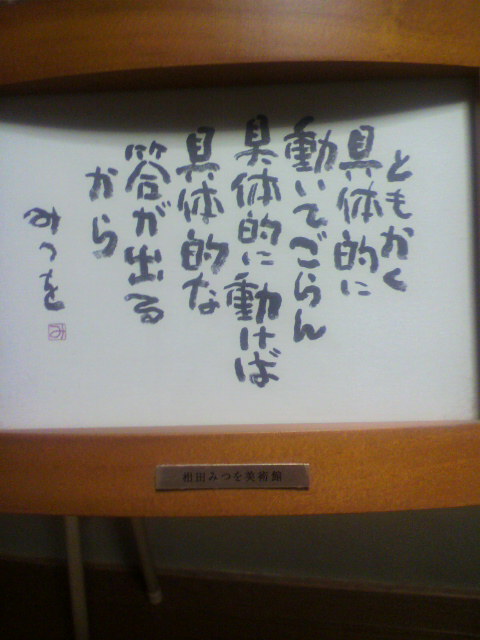 ともかく
具体的に
動いてごらん
具体的に動けば
具体的な
答が出る
から
みつを
み
相田みつを美術館